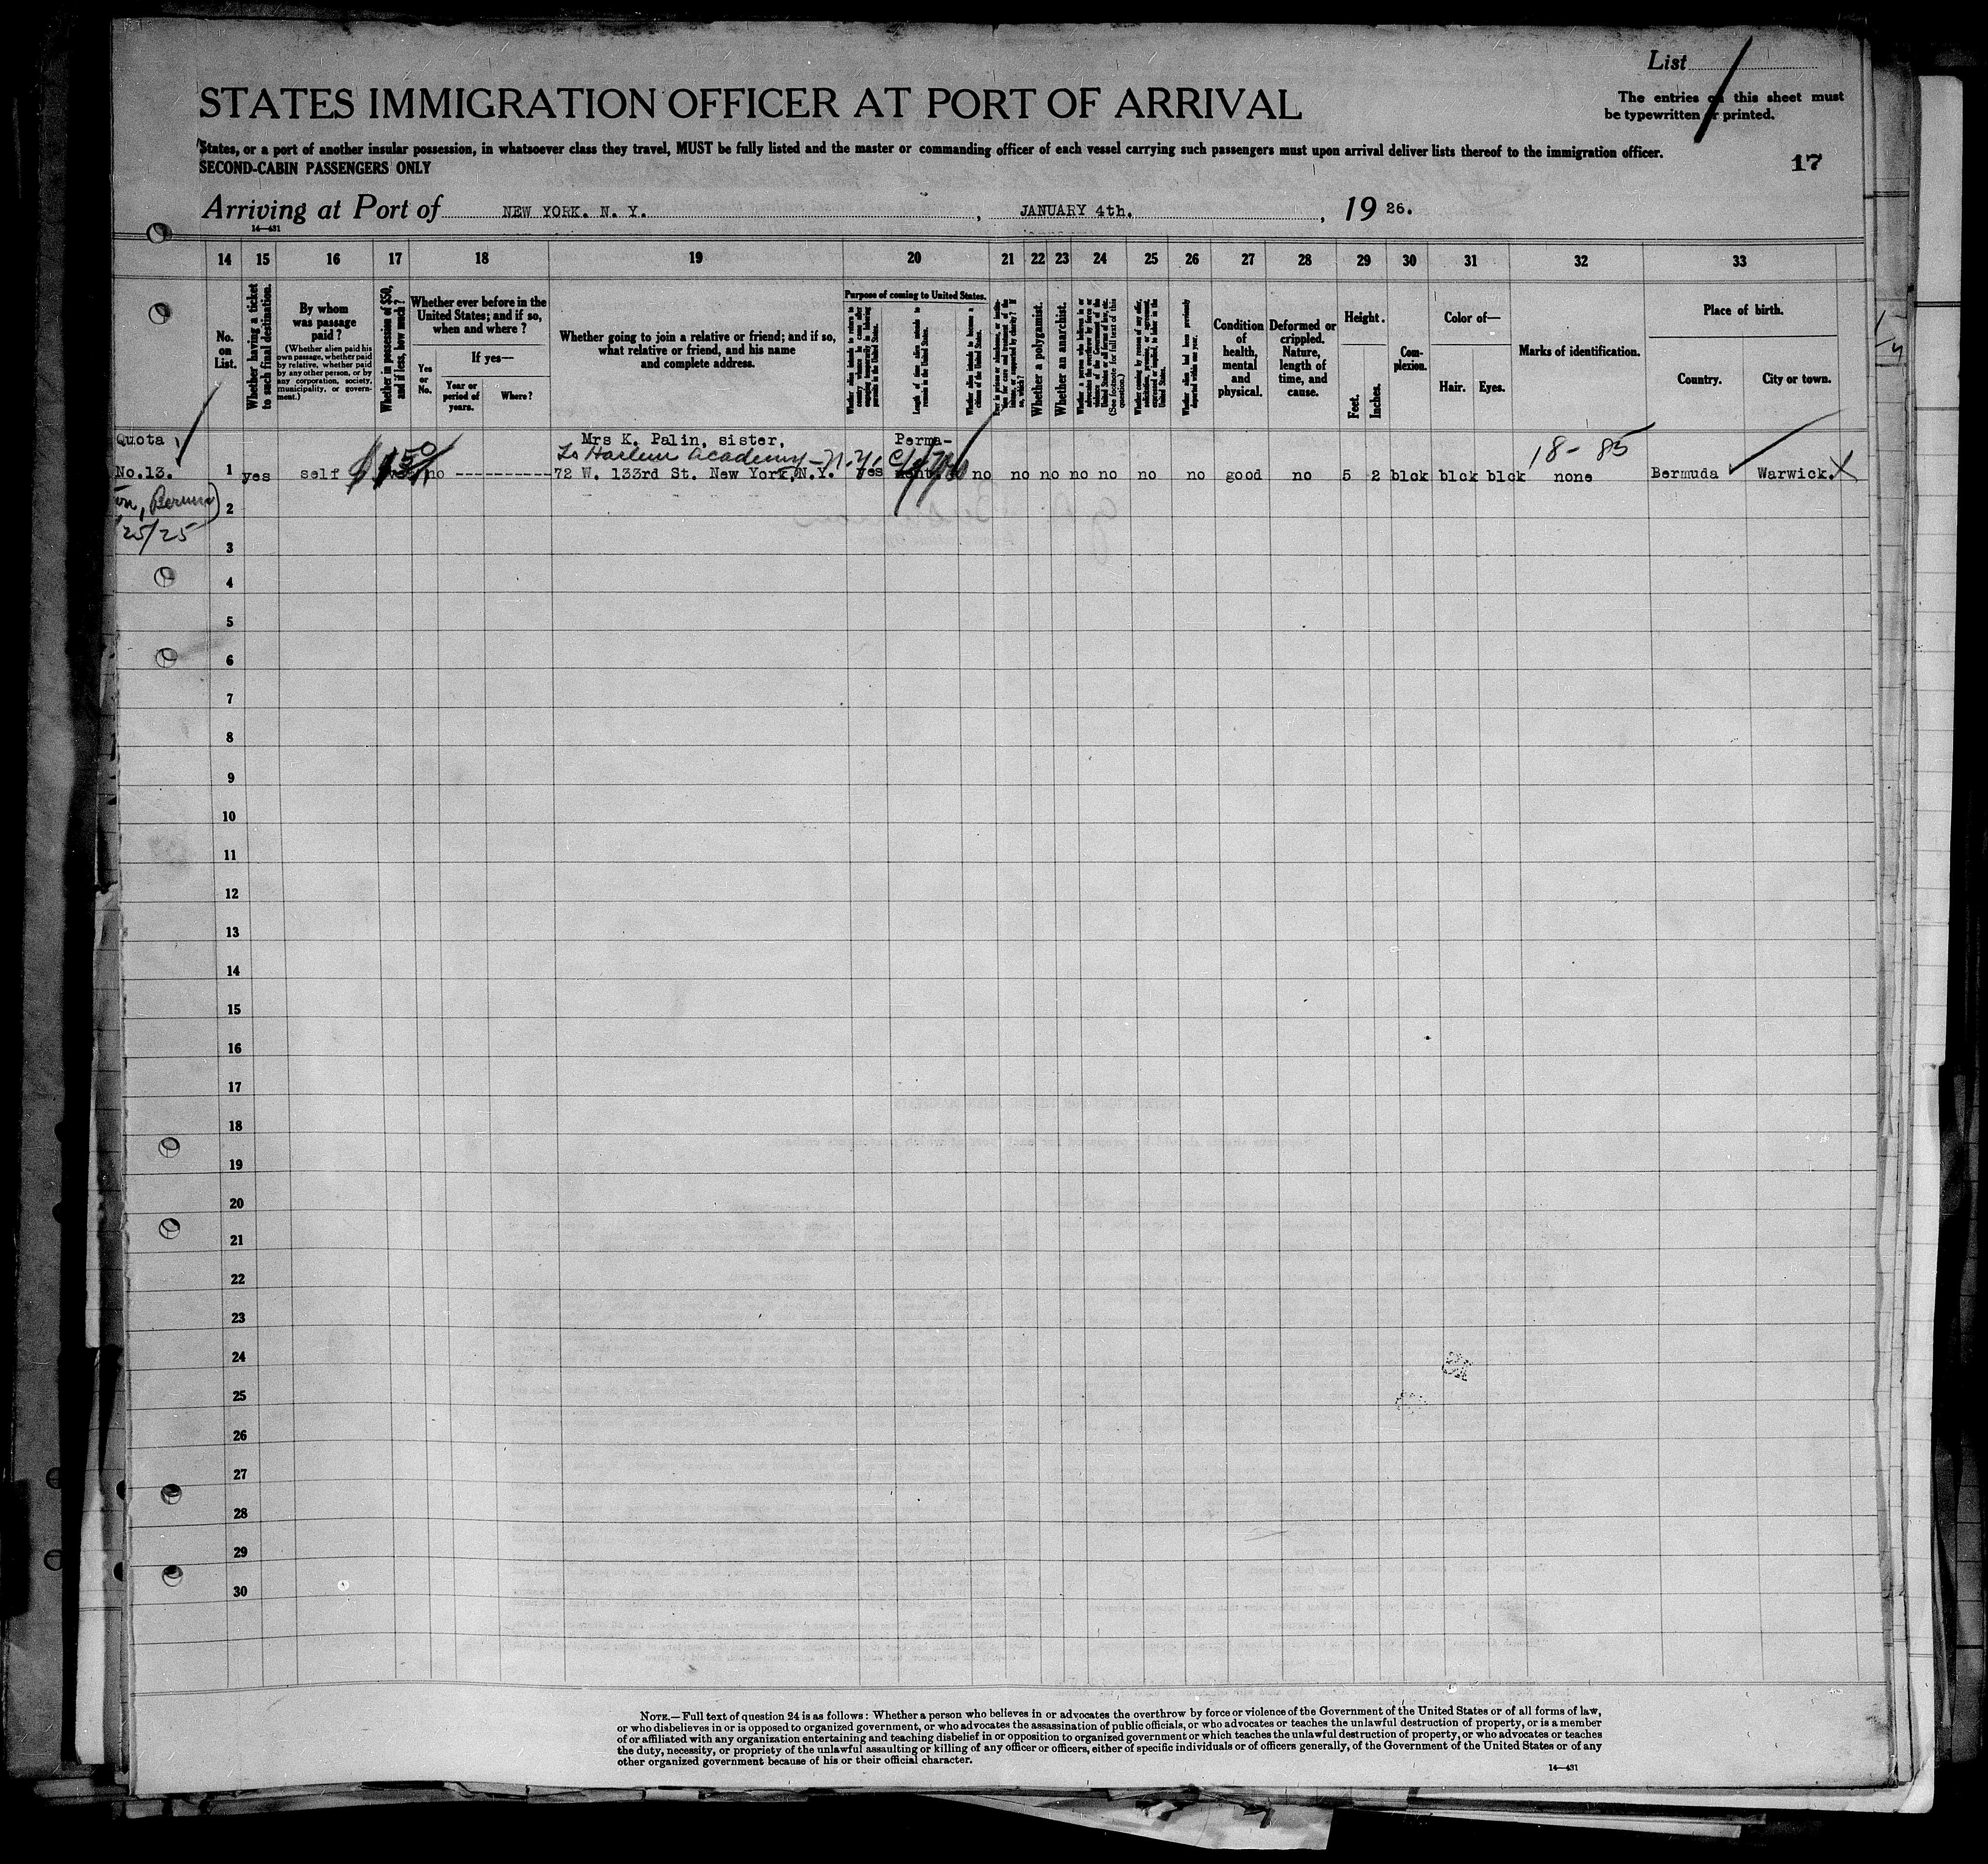 List
STATES IMMIGRATION OFFICER AT PORT OF ARRIVAL
The entries on this sheet must
be typewritten or printed.
States, or a port of another insular possession, in whatsoever class they travel, MUST be fully listed and the master or commanding officer of each vessel carrying such passengers must upon arrival deliver lists thereof to the immigration officer.
SECOND-CABIN PASSENGERS ONLY
17
Arriving at Port of NEW YORK. N. Y. , JANUARY 4th. , 19 26.
14—431
14 15 16 17 18 19 20 21 22 23 24 25 26 27 28 29 30 31 32 33
No.
on
List.
Whether having a ticket
to such final destination.
By whom
was passage
paid?
(Whether alien paid his
own passage, whether paid
by relative, whether paid
by any other person, or by
any corporation, society,
municipality, or govern-
ment.)
Whether in possession of $50,
and if less, how much?
Whether ever before in the
United States; and if so,
when and where?
Yes
or
No.
If yes—
Year or
period of
years.
Where?
Whether going to join a relative or friend; and if so,
what relative or friend, and his name
and complete address.
Purpose of coming to United States.
Whether alien intends to return to
country whence he came after
engaging temporarily in laboring
pursuits in the United States.
Length of time alien intends to
remain in the United States.
Whether alien intends to become a
citizen of the United States.
Whether a polygamist.
Whether an anarchist.
(See footnote for full text of this
question.)
Whether alien had been previously
deported within one year.
Condition
of
health,
mental
and
physical.
Deformed or
crippled.
Nature,
length of
time, and
cause.
Height.
Feet.
Inches.
Com-
plexion.
Color of—
Hair. Eyes.
Marks of identification.
Place of birth.
Country.
City or town.
Quota Mrs K. Palin, sister, Perma-
To Harlem Academy — N.Y. 18-85
No.13. 1 yes self $150 no ----------- 72 W. 133rd St. New York, N.Y. yes nent no no no no no no no no good no 5 2 blck blck blck none Bermuda Warwick.
2
25/25
3
4
5
6
7
8
9
10
11
12
13
14
15
16
17
18
19
20
21
22
23
24
25
26
27
28
29
30
NOTE.—Full text of question 24 is as follows: Whether a person who believes in or advocates the overthrow by force or violence of the Government of the United States or of all forms of law,
or who disbelieves in or is opposed to organized government, or who advocates the assassination of public officials, or who advocates or teaches the unlawful destruction of property, or is a member
of or affiliated with any organization entertaining and teaching disbelief in or opposition to organized government or which teaches the unlawful destruction of property, or who advocates or teaches
the duty, necessity, or propriety of the unlawful assaulting or killing of any officer or officers, either of specific individuals or of officers generally, of the Government of the United States or of any
other organized government because of his or their official character.
14—431